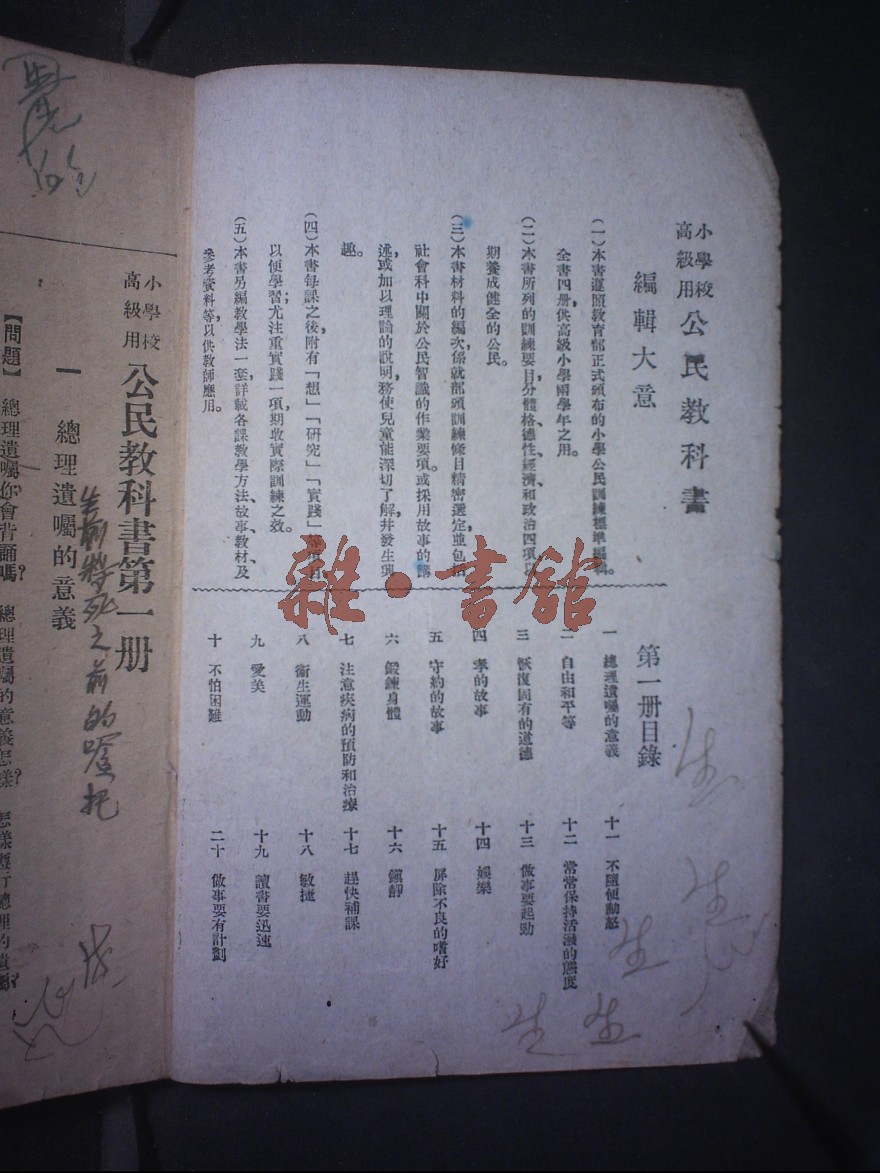 小學校
高級用
公民教科書
編輯大意
(一)本書遵照教育部正式頒布的小學公民訓練標準編輯。
全書四册，供高級小學兩學年之用。
(二)本書所列的訓練要目分體格、德性、經濟和政治四項以
期養成健全的公民。
(三)本書材料的編次，係就部頒訓練條目精密選定並包括
社會科中關於公民智識的作業要項。或採用故事的講
述，或加以理論的說明，務使兒童能深切了解，幷發生興
趣。
(四)本書每課之後，附有「想」「研究」「實踐」等項目
以便學習；尤注重實踐一項，期收實際訓練之效。
(五)本書另編教學法一套，詳載各課教學方法、故事教材、及
參考資料等，以供教師應用。
第一册目錄
一 總理遺囑的意義
二 自由和平等
三 恢復固有的道德
四 孝的故事
五 守約的故事
六 鍛鍊身體
七 注意疾病的預防和治療
八 衞生運動
九 愛美
十 不怕困難
十一 不隨便動怒
十二 常常保持活潑的態度
十三 做事要起勁
十四 娛樂
十五 屏除不良的嗜好
十六 鎭靜
十七 趕快補課
十八 敏捷
十九 讀書要迅速
二十 做事要有計劃
生
生
生
生
生
雜·書館
小學校
高級用
公民教科書第一册
生前將死之前的
一 總理遺囑的意義
【問題】 總理遺囑你會背誦嗎？ 總理遺囑的意義怎樣？ 怎樣遵行總理的遺囑？